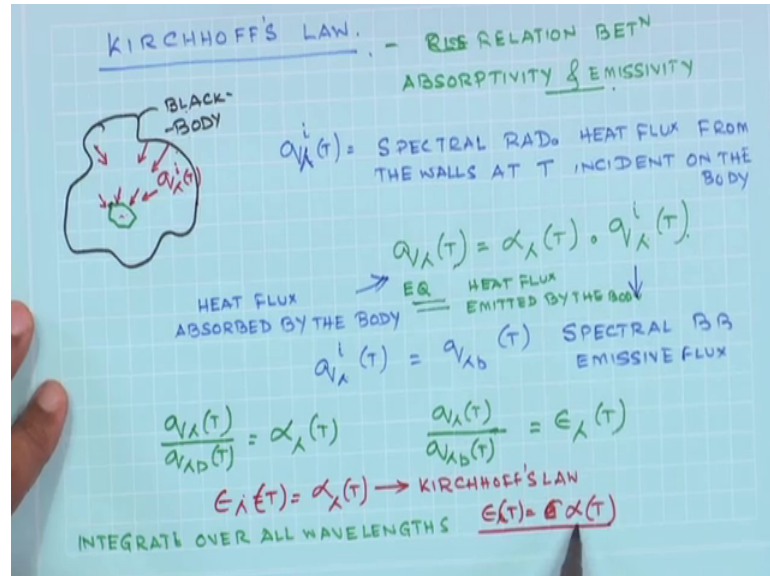 KIRCHHOFF'S LAW. - RELATION BETᴺ
ABSORPTIVITY & EMISSIVITY
BLACK-
-BODY
qλⁱ(T)
qλⁱ(T) = SPECTRAL RAD. HEAT FLUX FROM
THE WALLS AT T INCIDENT ON THE
BODY
qλ(T) = αλ(T) . qλⁱ(T).
HEAT FLUX
ABSORBED BY THE BODY
EQ HEAT FLUX
EMITTED BY THE BOD
qλⁱ(T) = qλb (T) SPECTRAL BB
EMISSIVE FLUX
qλ(T)/qλb(T) = αλ(T) qλ(T)/qλb(T) = ϵλ(T)
ϵλ(T) = αλ(T) → KIRCHHOFF'S LAW
INTEGRATE OVER ALL WAVELENGTHS ϵ(T) = α(T)